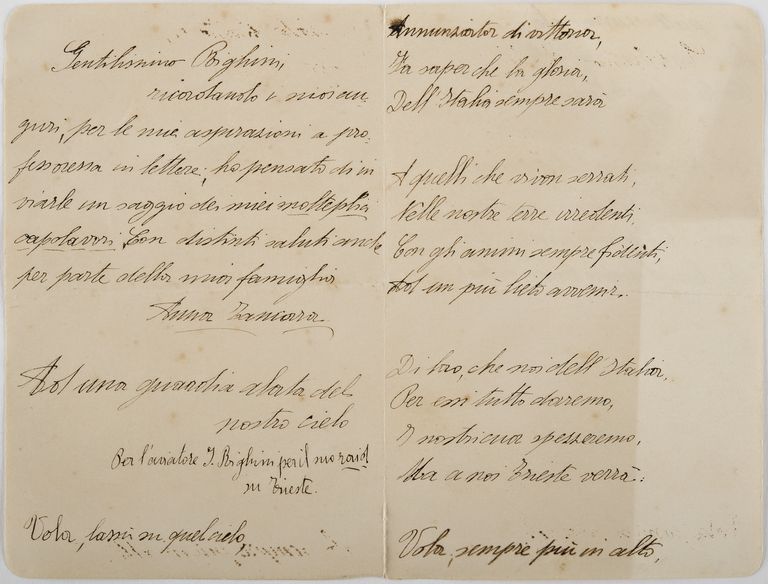 Gentilissimo Righini,
ricordando i suoi au-
guri, per le mie aspirazioni a pro-
fessoressa in lettere, ho pensato di in
viarle un saggio dei miei molteplici
capolavori. Con distinti saluti anche
per parte della mia famiglia
Anna Zancara
Ad una guardia alata del
nostro cielo
Per l'aviatore I. Righini per il suo raid
su Trieste.
Vola, lassù su quel cielo,
Annunziator di vittoria,
Fa saper che la gloria,
Dell'Italia sempre sarà
A quelli che vivon serrati,
Nelle nostre terre irredenti,
Con gli animi sempre fidenti,
Ad un più lieto avvenir.
Di loro, che noi dell'Italia,
Per essi tutto daremo,
I nostri cuor spezzeremo,
Ma a noi Trieste verrà.
Vola, sempre più in alto,